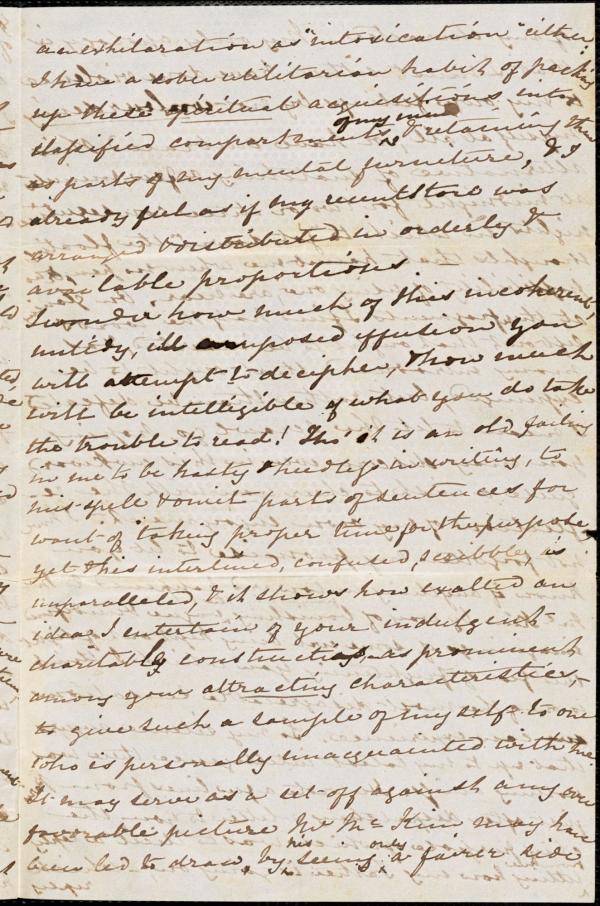 an exhilaration as "intoxication" either.
I have a sober utilitarian habit of packing
up these spiritual acquisitions into
classified compartments of my mind, & retaining them
as parts of my mental furniture, & I
already feel as if my recent store was
arranged & distributed in orderly &
available proportions.
I wonder how much of this incoherent,
untidy, ill composed effusion you
will attempt to decipher, & how much
will be intelligible of what you do take
the trouble to read! Tho' it is an old failing
in me to be hasty & heedless in writing, to
mis-spell & omit parts of sentences for
want of taking proper time for the purpose,
yet this interlined, confused, scribble, is
unparalleled, & it shows how exalted an
idea I entertain of your indulgent
charitably constructions as prominent
among your attracting characteristics,
to give such a sample of myself to one
who is personally unacquainted with me
It may serve as a set-off against any over
favorable picture Mr McKim may have
been led to draw, by his seeing only a fairer side